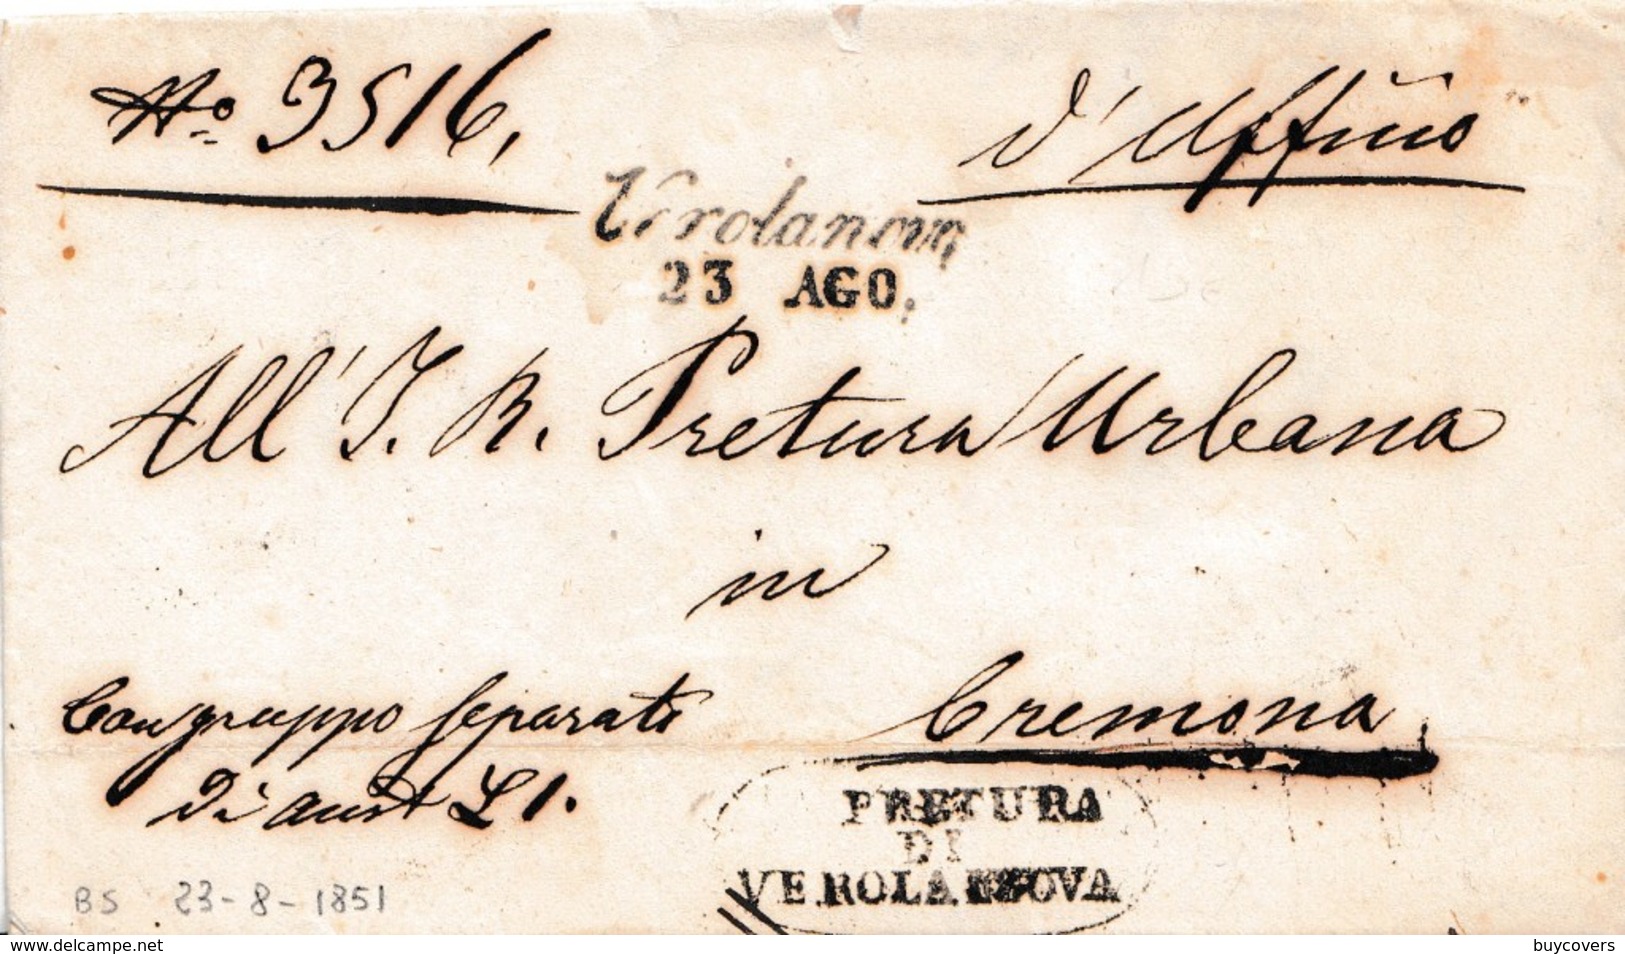 No 3516,
d'Ufficio
Verolanova
23 AGO.
All' I. R. Pretura Urbana
in
Cremona
Con gruppo separato
di aust L 1.
PRETURA
DI
VEROLANUOVA
BS 23-8-1851
www.delcampe.net
buycovers